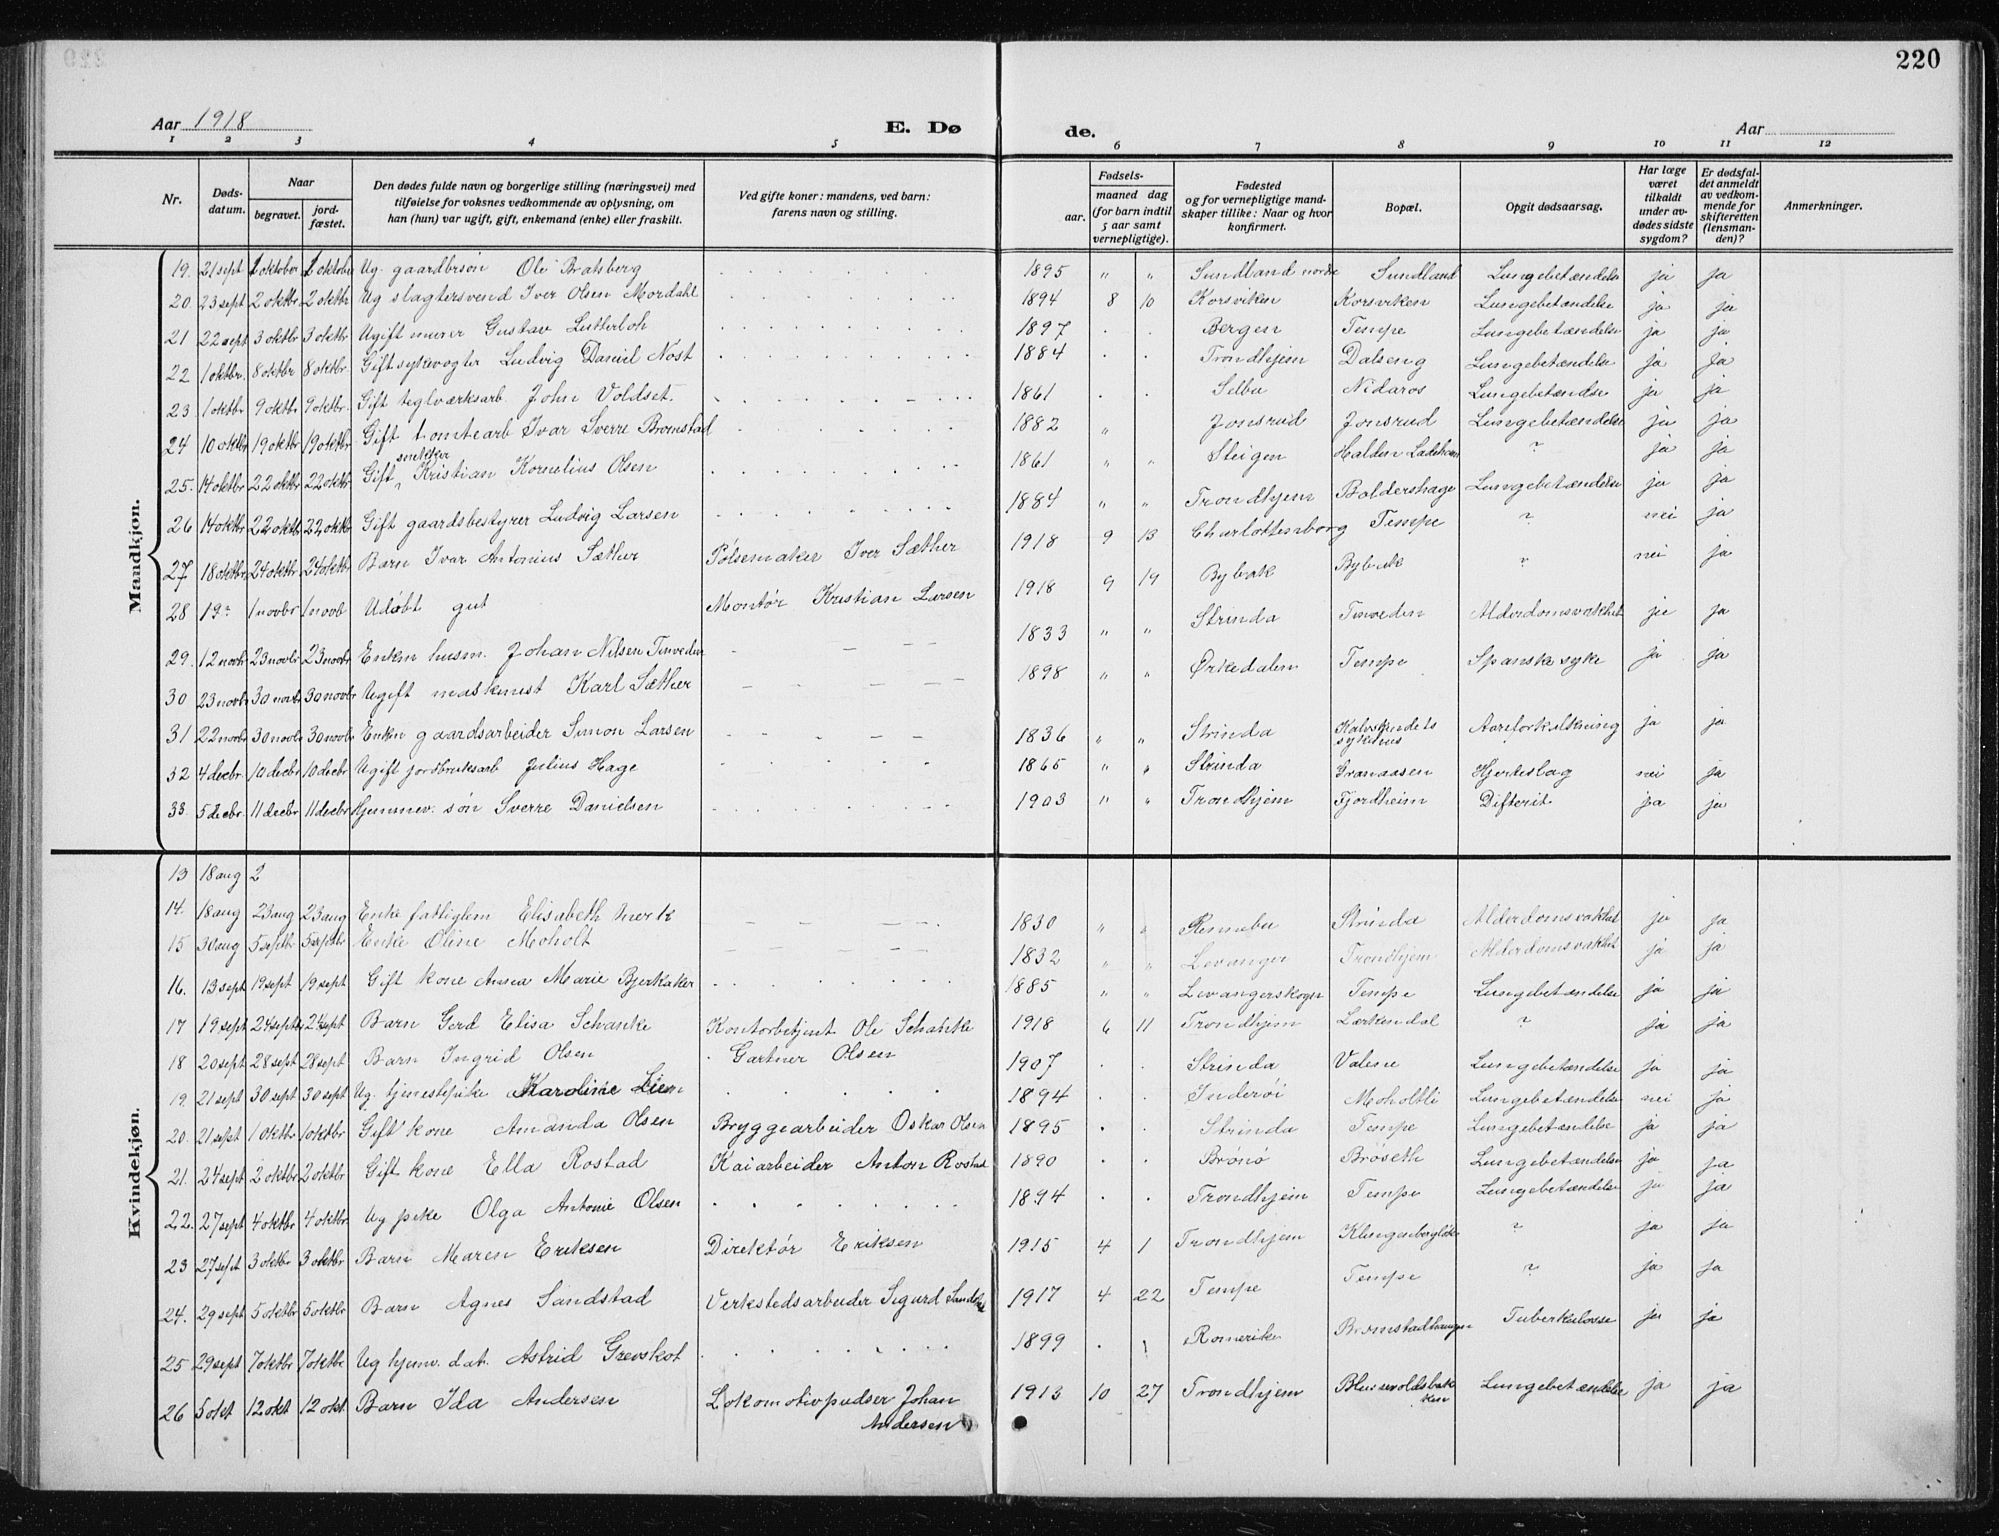 220
Aar 1918
E. Dø
de.
Aar
1 2 3 4 5 6 7 8 9 10 11 12
Nr. | Døds-datum. | Naar begravet. | jord-fæstet. | Den dødes fulde navn og borgerlige stilling (næringsvei) med tilføielse for voksnes vedkommende av oplysning, om han (hun) var ugift, gift, enkemand (enke) eller fraskilt. | Ved gifte koner: mandens, ved barn: farens navn og stilling. | Fødsels- aar. | maaned dag (for barn indtil 5 aar samt vernepligtige). | Fødested og for vernepligtige mandskaper tillike: Naar og hvor konfirmert. | Bopæl. | Opgit dødsaarsag. | Har læge været tilkaldt under avdødes sidste sygdom? | Er dødsfaldet anmeldt av vedkommende for skifteretten (lensmanden)? | Anmerkninger.
Mandkjøn.
19. 21 sept 1 oktober 1 oktober Ug. gaardbrsøn Ole Bratsberg 1895 " " Sundland nordre Sundland Lungebetændelse ja ja
20 23 sept 2 oktbr 2 oktbr Ug slagtersvend Iver Olsen Mordahl 1894 8 10 Korsviken Korsviken Lungebetændelse ja ja
21 22 sept 3 oktbr 3 oktbr Ugift murer Gustav Lutterloh 1897 Bergen Tempe Lungebetændelse ja ja
22 1 oktbr. 8 oktbr 8 oktbr. Gift sykevogter Ludvig Daniel Nost 1884 Trondhjem Dalseng Lungebetændelse ja ja
23 1 oktbr 9 oktbr 9 oktbr. Gift teglværksarb. John Voldset. 1861 Selbu Nidaros Lungebetændse ja ja
24 10 oktbr 19 oktbr 19 oktbr. Gift tomtearb Ivar Sverre Bromstad 1882 " Jonsrud Jonsrud Lungebetændelse ja ja
25. 14 oktbr 22 oktbr 22 oktbr Gift snekker Kristian Kornelius Olsen 1861 " " Steigen Halden ? ja ja
26 14 oktbr 22 oktbr 22 oktbr Gift gaardsbestyrer Ludvig Larsen 1884 " " Trondhjem Baldershage Lungebetændelse ja ja
27 18 oktbr 24 oktbr 24 oktbr Barn Ivar Antonius Sæther Pølsemaker Iver Sæther 1918 9 13 Charlottenborg Tempe ? nei ja
28 19 " 1 novbr 1 novb Udøbt gut Montør Kristian Larsen 1918 9 19 Bybak Bybak ? nei ja
29. 12 novbr 23 novbr 23 novbr. Enkm husm. Johan Nilsen Tesveden 1833 " " Strinda Tesveden Alderdomsvakhet ja ja
30 23 novbr 30 novbr 30 novbr Ugift maskinist Karl Sæther 1898 " " Ørkedalen Tempe Spanske syke ja ja
31 22 novbr 30 novbr 30 novbr Enkm gaardsarbeider Simon Larsen 1836 " " Strinda Kalvskindets sykehus Aareforkalkning ja ja
32 4 decbr. 10 decbr 10 decbr Ugift jordbruksarb Julius Hage 1865 " " Strinda Granaasen Hjerteslag nei ja
33. 5 decbr. 11 decbr 11 decbr Hjemmev. søn Sverre Danielsen 1903 " " Trondhjem Fjordheim Difterit. ja ja
Kvindekjøn.
13 18 aug 2
14. 18 aug 23 aug 23 aug Enke fattiglem Elisabeth Merk 1830 " " Rennebu Strinda Alderdomsvakhet ja ja
15 30 aug 5 septbr 5 septbr Enke Oline Moholt 1832 " " Levanger Trondhjem Alderdomsvakhet ja ja
16. 13 sept 19 sept 19 sept Gift kone Anna Marie Bjerkaker 1885 " " Levangerskogn Tempe Lungebetændelse ja ja
17 19 sept 24 sept 24 sept Barn Gerd Elisa Schanke Kontorbetjent Ole Schanke 1918 6 11 Trondhjem Lærkendal ? ja ja
18 20 sept 28 sept 28 sept Barn Ingrid Olsen Gartner Olsen 1907 Strinda Valene Lungebetændelse ja ja
19. 21 sept 30 sept 30 sept Ug. tjenestepike Karoline Lien 1894 Inderøi Moholtli Lungebetændelse nei ja
20. 21 sept 1 oktbr 1 oktbr Gift kone Amanda Olsen Bryggearbeider Oskar Olsen 1895 Strinda Tempe Lungebetændelse ja ja
21. 24 sept 2 oktbr 2 oktbr Gift kone Ella Rostad Kaiarbeider Anton Rostad 1890 Brønø Brøseth Lungebetændelse ja ja
22. 27 sept 4 oktbr 4 oktbr. Ug pike Olga Antonie Olsen 1894 Trondhjem Tempe Lungebetændelse ja ja
23 27 sept 3 oktbr 3 oktbr Barn Maren Eriksen Direktør Eriksen 1915 4 1 Trondhjem ? ja ja
24. 29 sept 5 oktbr 5 oktbr Barn Agnes Sandstad Verkstedsarbeider Sigurd Sandstad 1917 4 22 Tempe Tempe ? ja ja
25 29 sept 7 oktbr 7 oktbr Ug hjemv. dat. Astrid Grevskot 1899 Romerike Bromstadhaugen Tuberkulosse ja ja
26 5 okt 12 okt 12 okt. Barn Ida Andersen Lokomotivpudser Johan Andersen 1913 10 27 Trondhjem Blussevoldsbakken Lungebetændelse ja ja